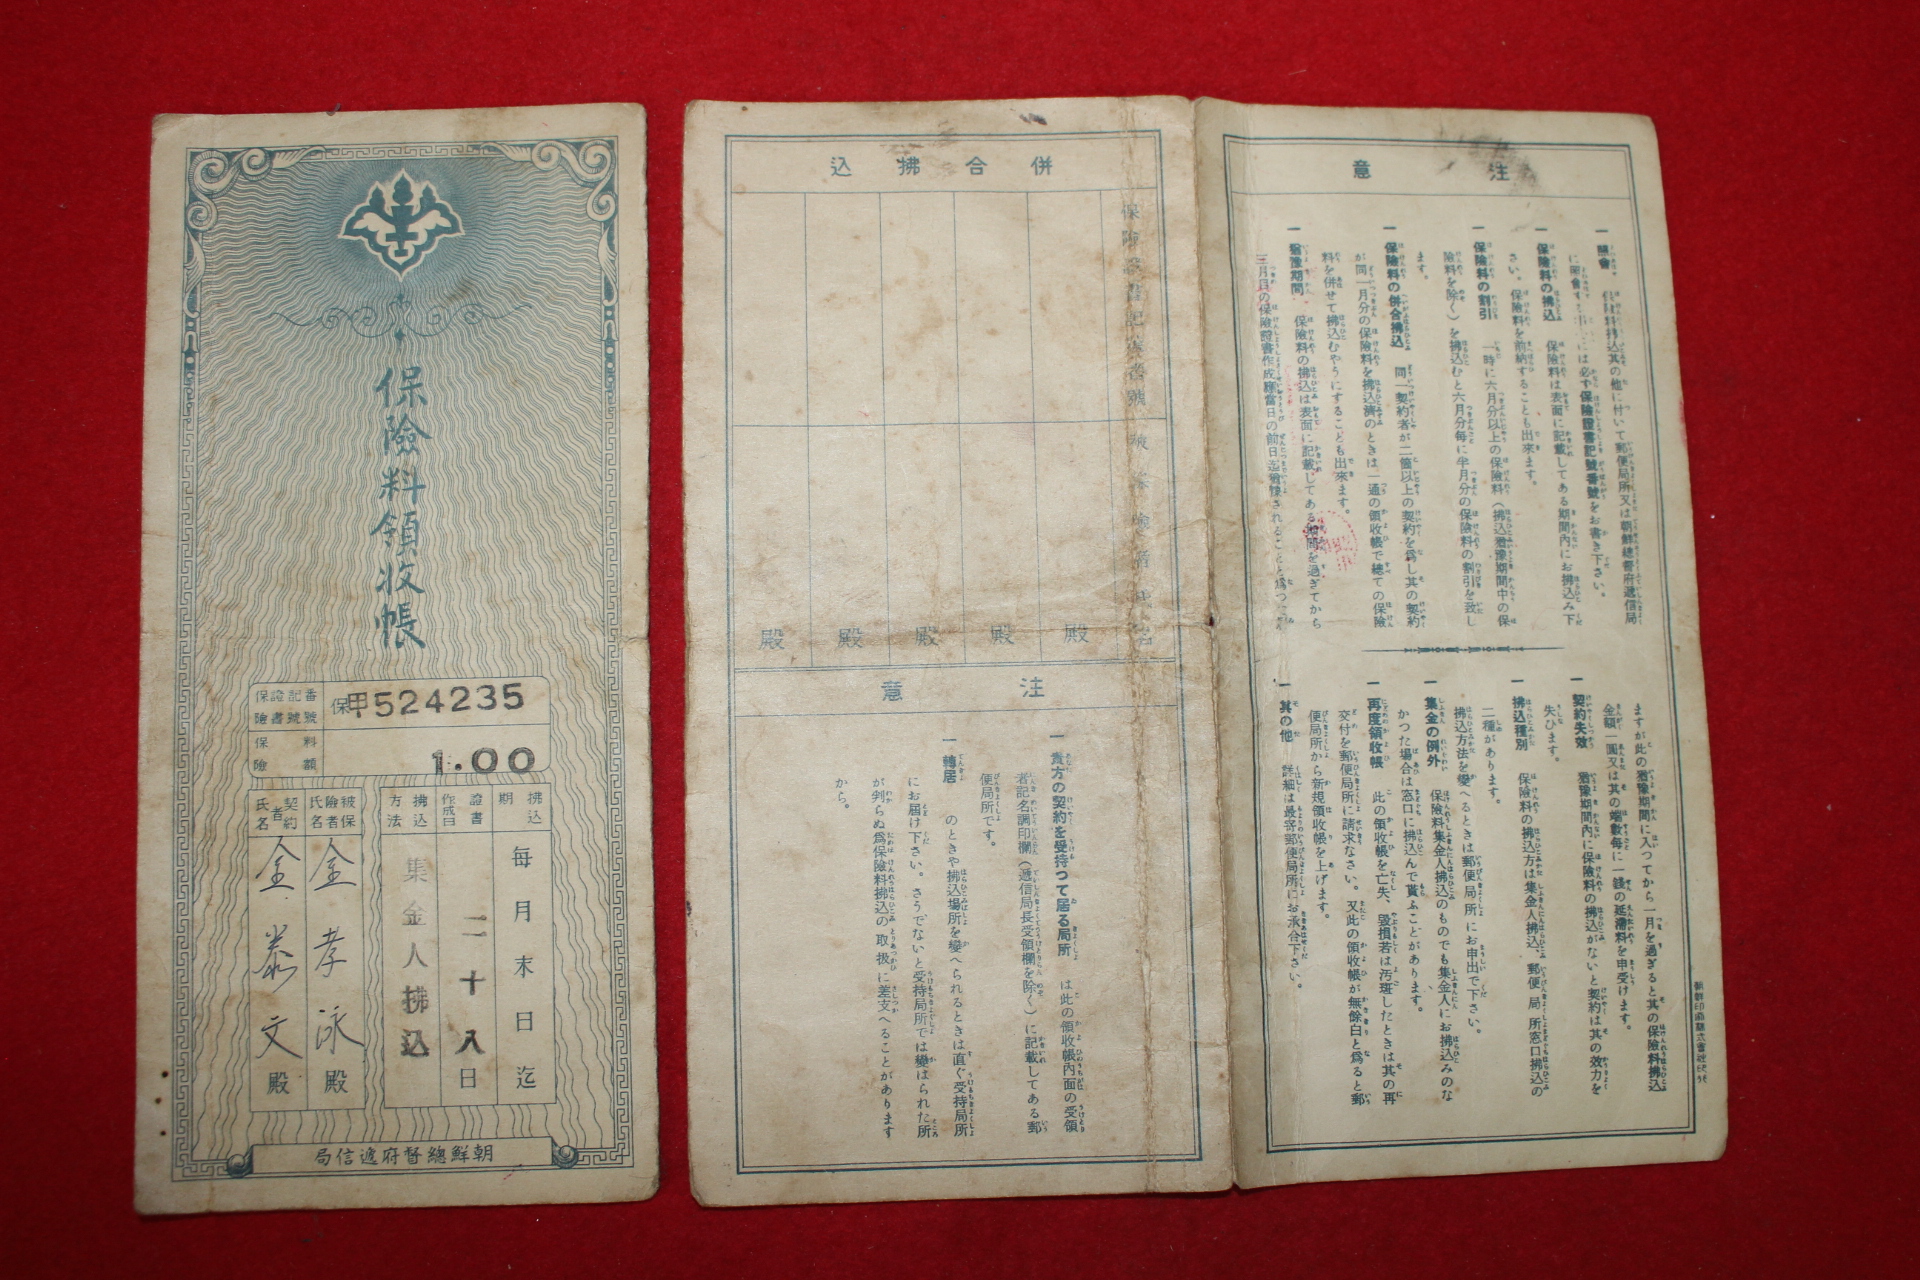 保險料領收帳
保險證書記號番號
保甲524235
保險料額
1.00
拂込期
每月末日迄
證書作成日
二十八日
拂込方法
集金人拂込
被保險者氏名
金孝泳殿
契約者氏名
金泰文殿
朝鮮總督府遞信局
併合拂込
保險證書記號番號
被保險者氏名
殿
殿
殿
殿
殿
注意
一 貴方の契約を受持つて居る局所 は此の領收帳內面の受領
者記名調印欄(遞信局長受領欄を除く)に記載してある郵
便局所です。
一 轉居 のときや拂込場所を變へられるときは直ぐ受持局所
にお屆け下さい。さうでないと受持局所では變はられた所
が判らぬ爲保險料拂込の取扱に差支へることがあります
から。
注意
一 照會 保險料拂込其の他に付いて郵便局所又は朝鮮總督府遞信局
には必ず保險證書記號番號をお書き下さい。
一 保險料の拂込 保險料は表面に記載してある期間內にお拂込み下
さい。保險料を前納することも出來ます。
一 保險料の割引 一時に六月分以上の保險料(拂込猶豫期間中の保
險料を除く)を拂込むと六月分每に半月分の保險料の割引を致し
ます。
一 保險料の併合拂込 同一契約者が二箇以上の契約を爲し其の契約
が同一月分の保險料を拂込濟のときは一通の領收帳で總ての保險
料を併せて拂込むやうにすることも出來ます。
一 猶豫期間 保險料の拂込は表面に記載してある期間を過ぎてから
三月目の保險證書作成應當日の前日迄猶豫されることと爲つて
ますが此の猶豫期間に入つてから一月を過ぎると其の保險料拂込
金額一圓又は其の端數每に一錢の延滯料を申受けます。
一 契約失效 猶豫期間內に保險料の拂込がないと契約は其の效力を
失ひます。
一 拂込種別 保險料の拂込方は集金人拂込、郵便局所窓口拂込の
二種があります。
拂込方法を變へるときは郵便局所にお申出で下さい。
一 集金の例外 保險料集金人拂込のものでも集金人にお拂込みのな
かつた場合は窓口に拂込んで貰ふことがあります。
一 再度領收帳 此の領收帳を亡失、毀損若は汚斑したときは其の再
交付を郵便局所に請求なさい。又此の領收帳が無餘白と爲ると郵
便局所から新規領收帳を上げます。
一 其の他 詳細は最寄郵便局所にお承合下さい。